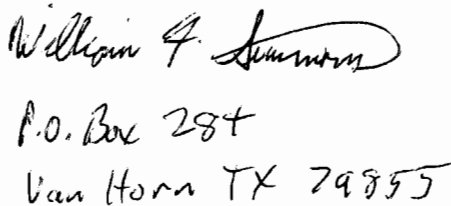 William F. Simmons
P.O. Box 284
Van Horn TX 79855